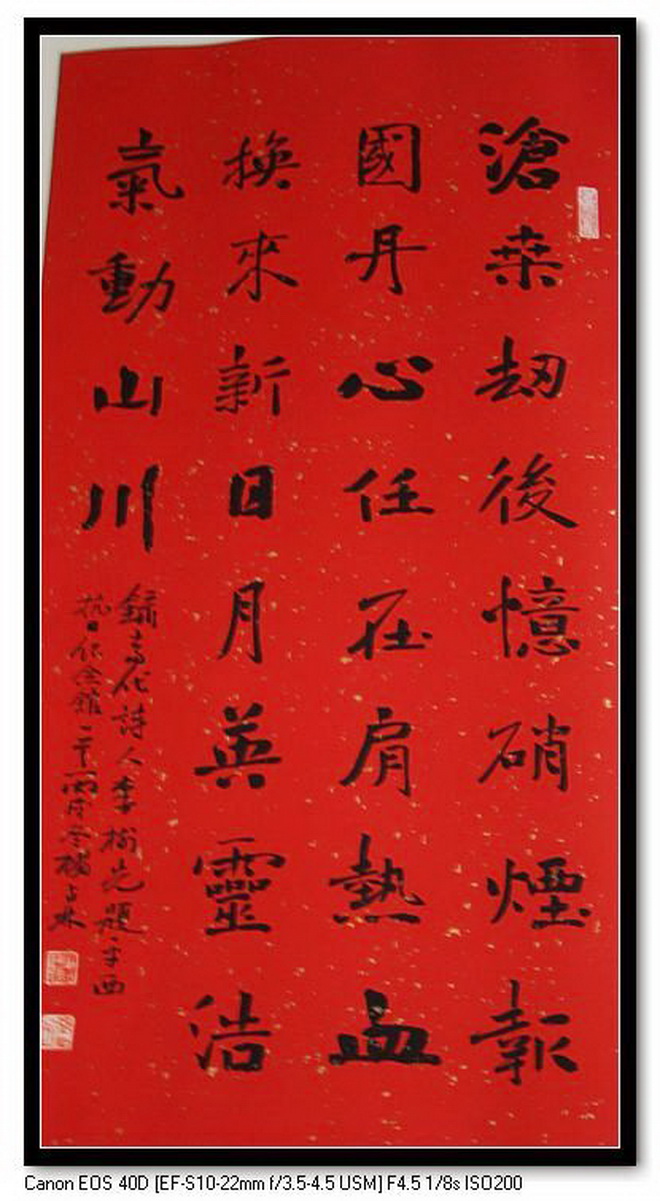 滄桑劫後憶硝煙報
國丹心任在肩熱血
換來新日月英靈浩
氣動山川
錄當代詩人李樹先題平西
抗日紀念館冬楊占林
Canon EOS 40D [EF-S10-22mm f/3.5-4.5 USM] F4.5 1/8s ISO200